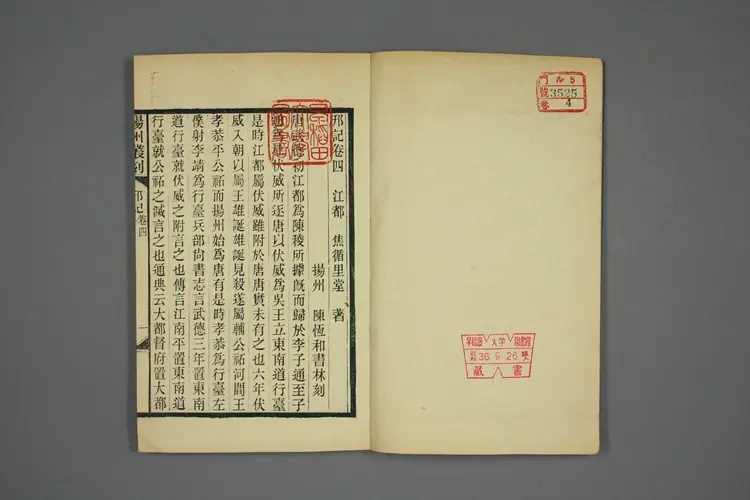 邗記卷四　江都　焦循里堂　著
揚州　陳恆和書林刻
唐武德初江都為陳稜所據既而歸於李子通至子
通為杜伏威所逐唐以伏威為吳王立東南道行臺
是時江都屬伏威雖附於唐唐實未有之也六年伏
威入朝以屬王雄誕雄誕見殺遂屬輔公祏河間王
孝恭平公祏而揚州始為唐有是時孝恭為行臺左
僕射李靖為行臺兵部尙書志言武德三年置東南
道行臺就伏威之附言之也傳言江南平置東南道
行臺就公祏之滅言之也通典云大都督府置大都
揚州叢刻
邗記卷四
一
門 ル5
號 3525
卷 4
早稻田
大學
圖書館
36.9.26
藏書